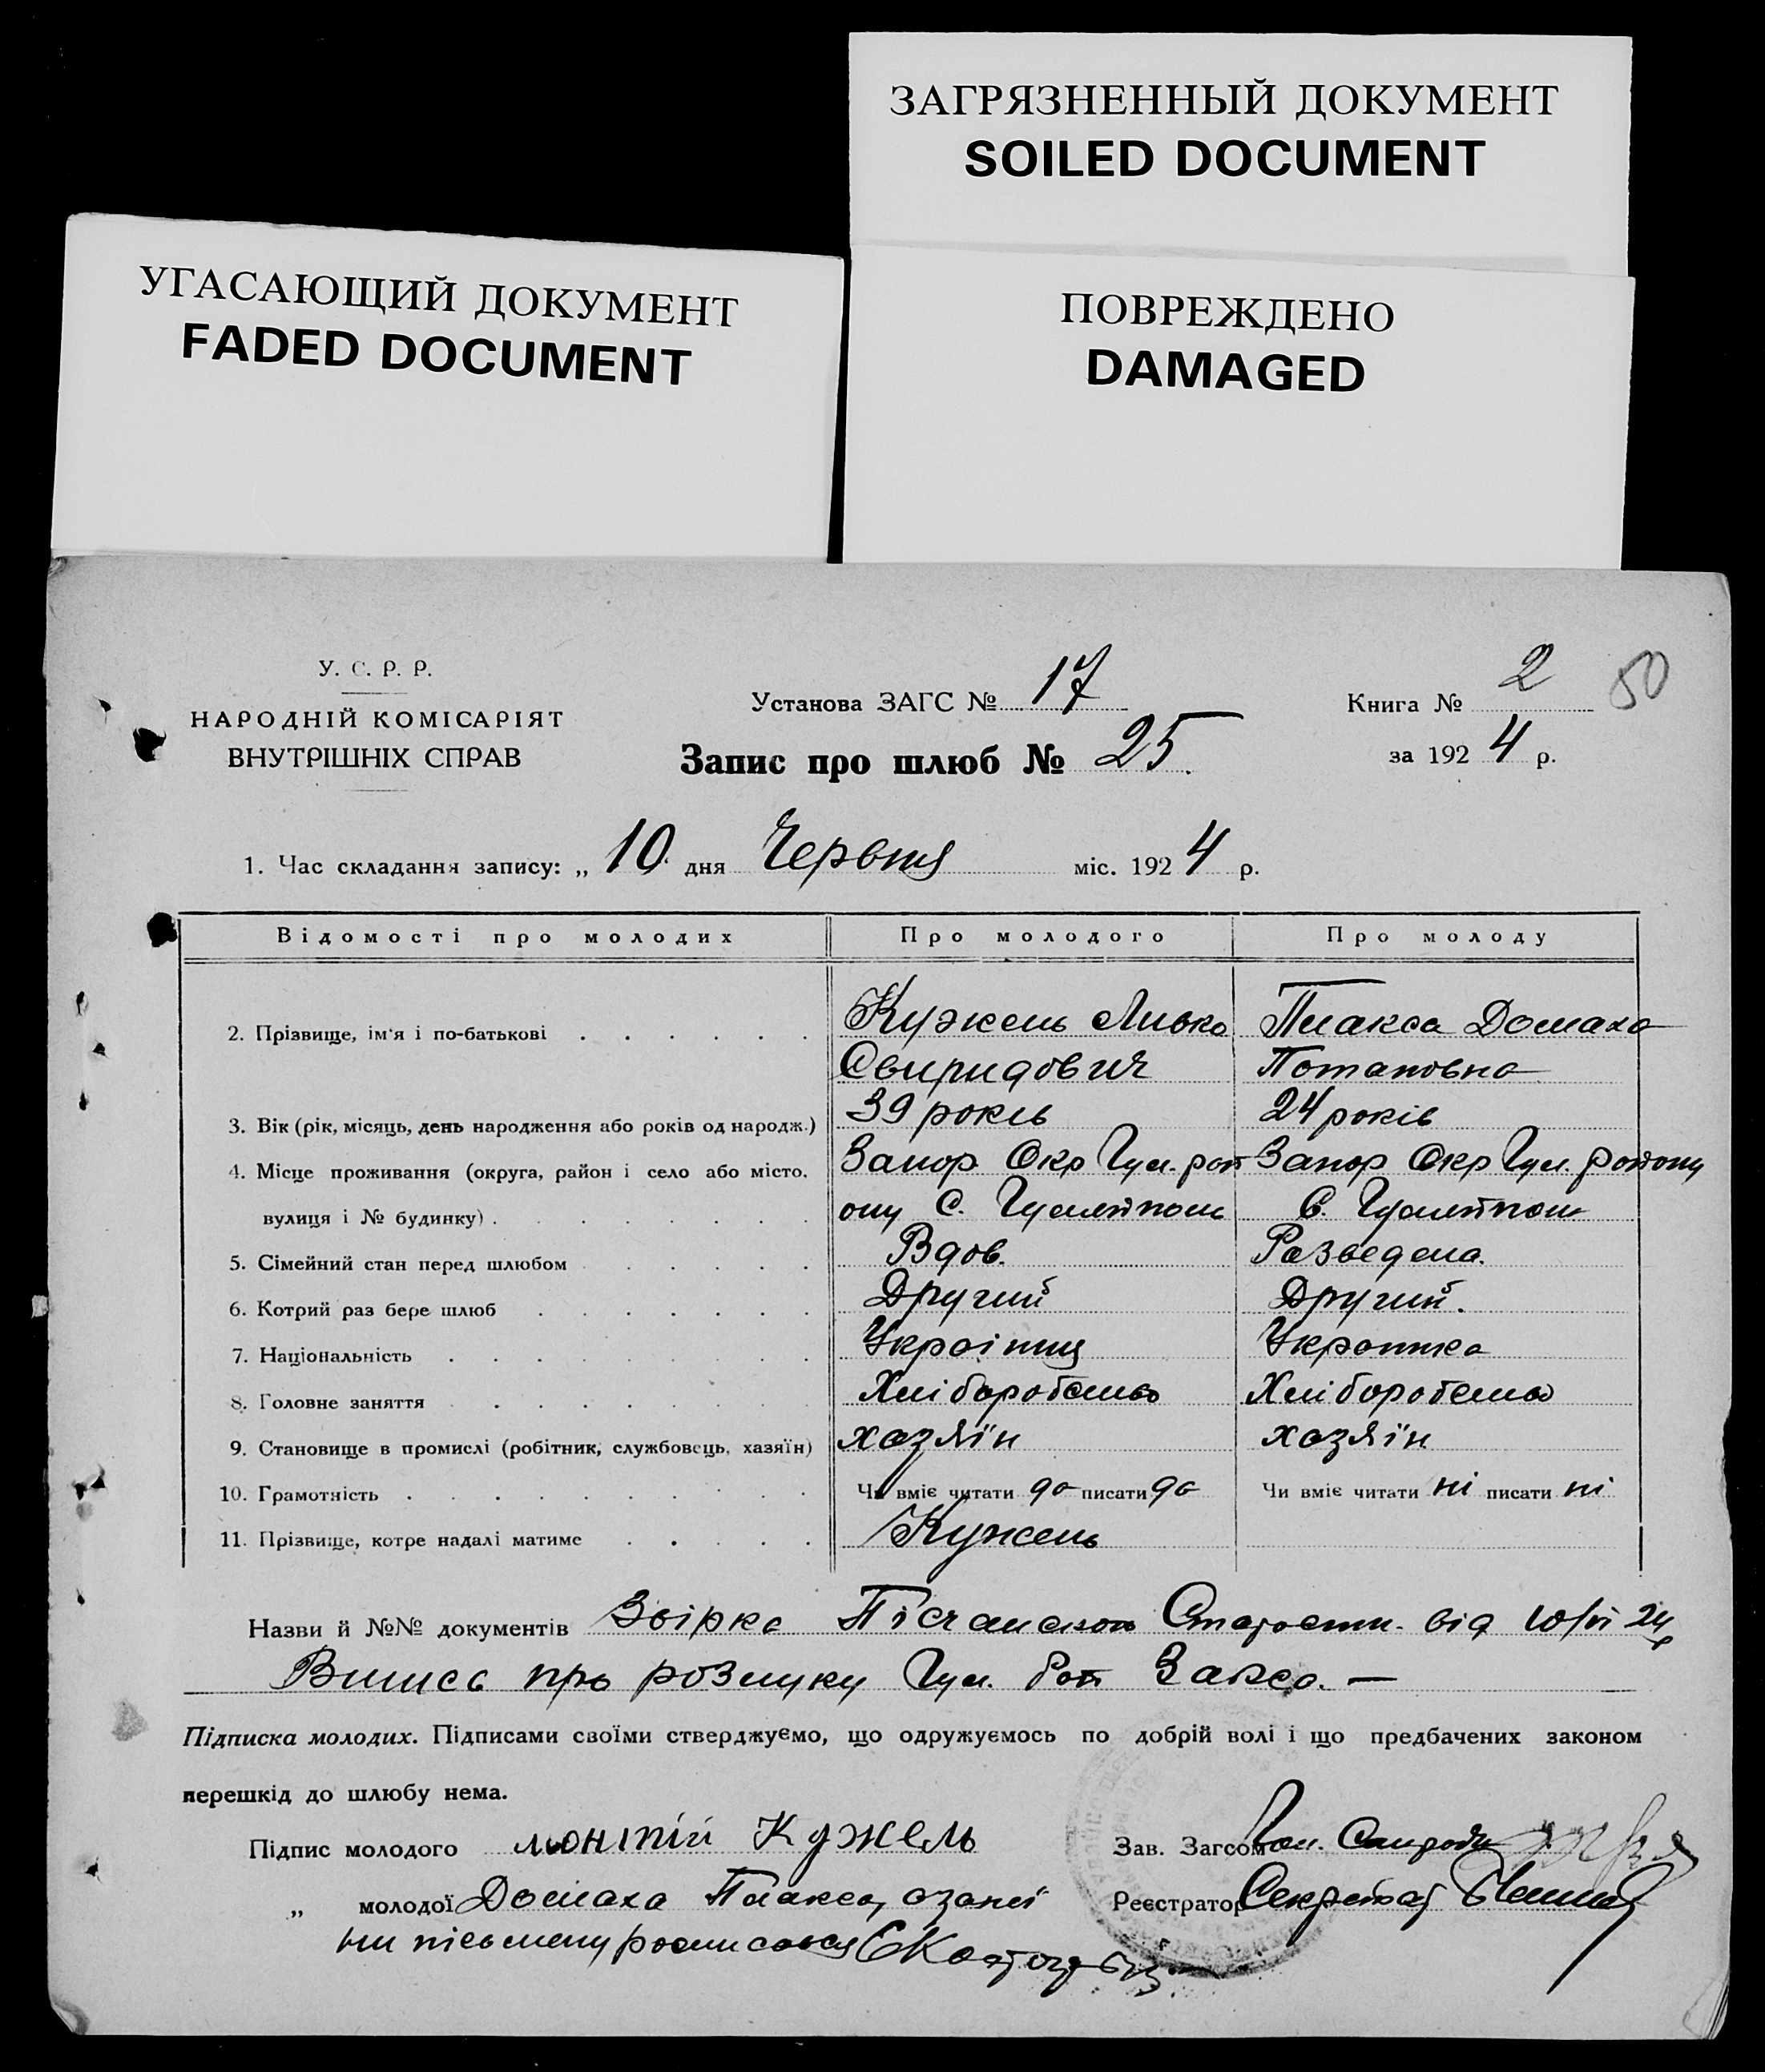 ЗАГРЯЗНЕННЫЙ ДОКУМЕНТ
SOILED DOCUMENT
УГАСАЮЩИЙ ДОКУМЕНТ
FADED DOCUMENT
ПОВРЕЖДЕНО
DAMAGED
У. С. Р. Р.
НАРОДНІЙ КОМІСАРІЯТ
ВНУТРІШНІХ СПРАВ
Установа ЗАГС № 17
Запис про шлюб № 25.
Книга № 2
50
за 1924 р.
1. Час складання запису: „ 10 дня Червня міс. 1924 р.
Відомості про молодих Про молодого Про молоду
2. Прізвище, ім'я і по-батькові Кужель Плакса Домаха
Свиридович Потаповна
3. Вік (рік, місяць, день народження або років од народж.) 39 років 24 років
4. Місце проживання (округа, район і село або місто, Запор Окр Гул. рай Запор Окр Гул. району
вулиця і № будинку) ону С. Гуляйполе С. Гуляйполе
5. Сімейний стан перед шлюбом Вдов. Разведена.
6. Котрий раз бере шлюб Другий Другий.
7. Національність Украінец Украинка
8. Головне заняття Хліборобство Хліборобство
9. Становище в промислі (робітник, службовець, хазяїн) хозяїн хозяїн
10. Грамотність Чи вміє читати да писати да Чи вміє читати ні писати ні
11. Прізвище, котре надалі матиме Кужель
Назви й №№ документів Звірка від 10/VI 24 р
Вились про розлуку Гул. Рай Загса. —
Підписка молодих. Підписами своїми стверджуємо, що одружуємось по добрій волі і що предбачених законом
перешкід до шлюбу нема.
Підпис молодого Кужель Зав. Загсом
„ молодої Домаха Плакса, а за неї Реєстратор Секретар